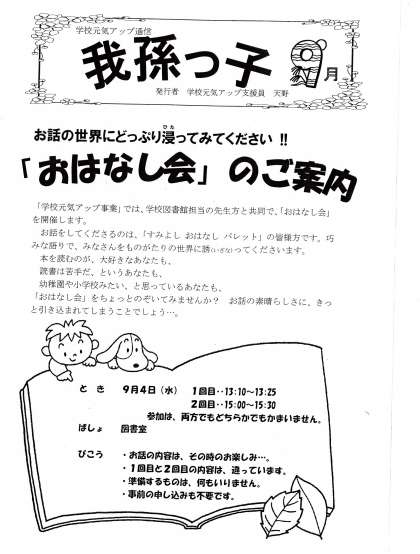 学校元気アップ通信
我孫っ子
9月
発行者 学校元気アップ支援員 天野
お話の世界にどっぷり浸(ひた)ってみてください!!
「おはなし会」のご案内
「学校元気アップ事業」では、学校図書館担当の先生方と共同で、「おはなし会」
を開催します。
お話をしてくださるのは、「すみよし おはなし パレット」の皆様方です。巧
みな語りで、みなさんをものがたりの世界に誘(いざな)ってくださいます。
本を読むのが、大好きなあなたも、
読書は苦手だ、というあなたも、
幼稚園や小学校みたい、と思っているあなたも、
「おはなし会」をちょっとのぞいてみませんか? お話の素晴らしさに、きっ
と引き込まれてしまうことでしょう…。
とき 9月4日(水) 1回目‥13:10~13:25
2回目‥15:00~15:30
参加は、両方でもどちらかでもかまいません。
ばしょ 図書室
びこう ・お話の内容は、その時のお楽しみ…。
・1回目と2回目の内容は、違っています。
・準備するものは、何もいりません。
・事前の申し込みも不要です。